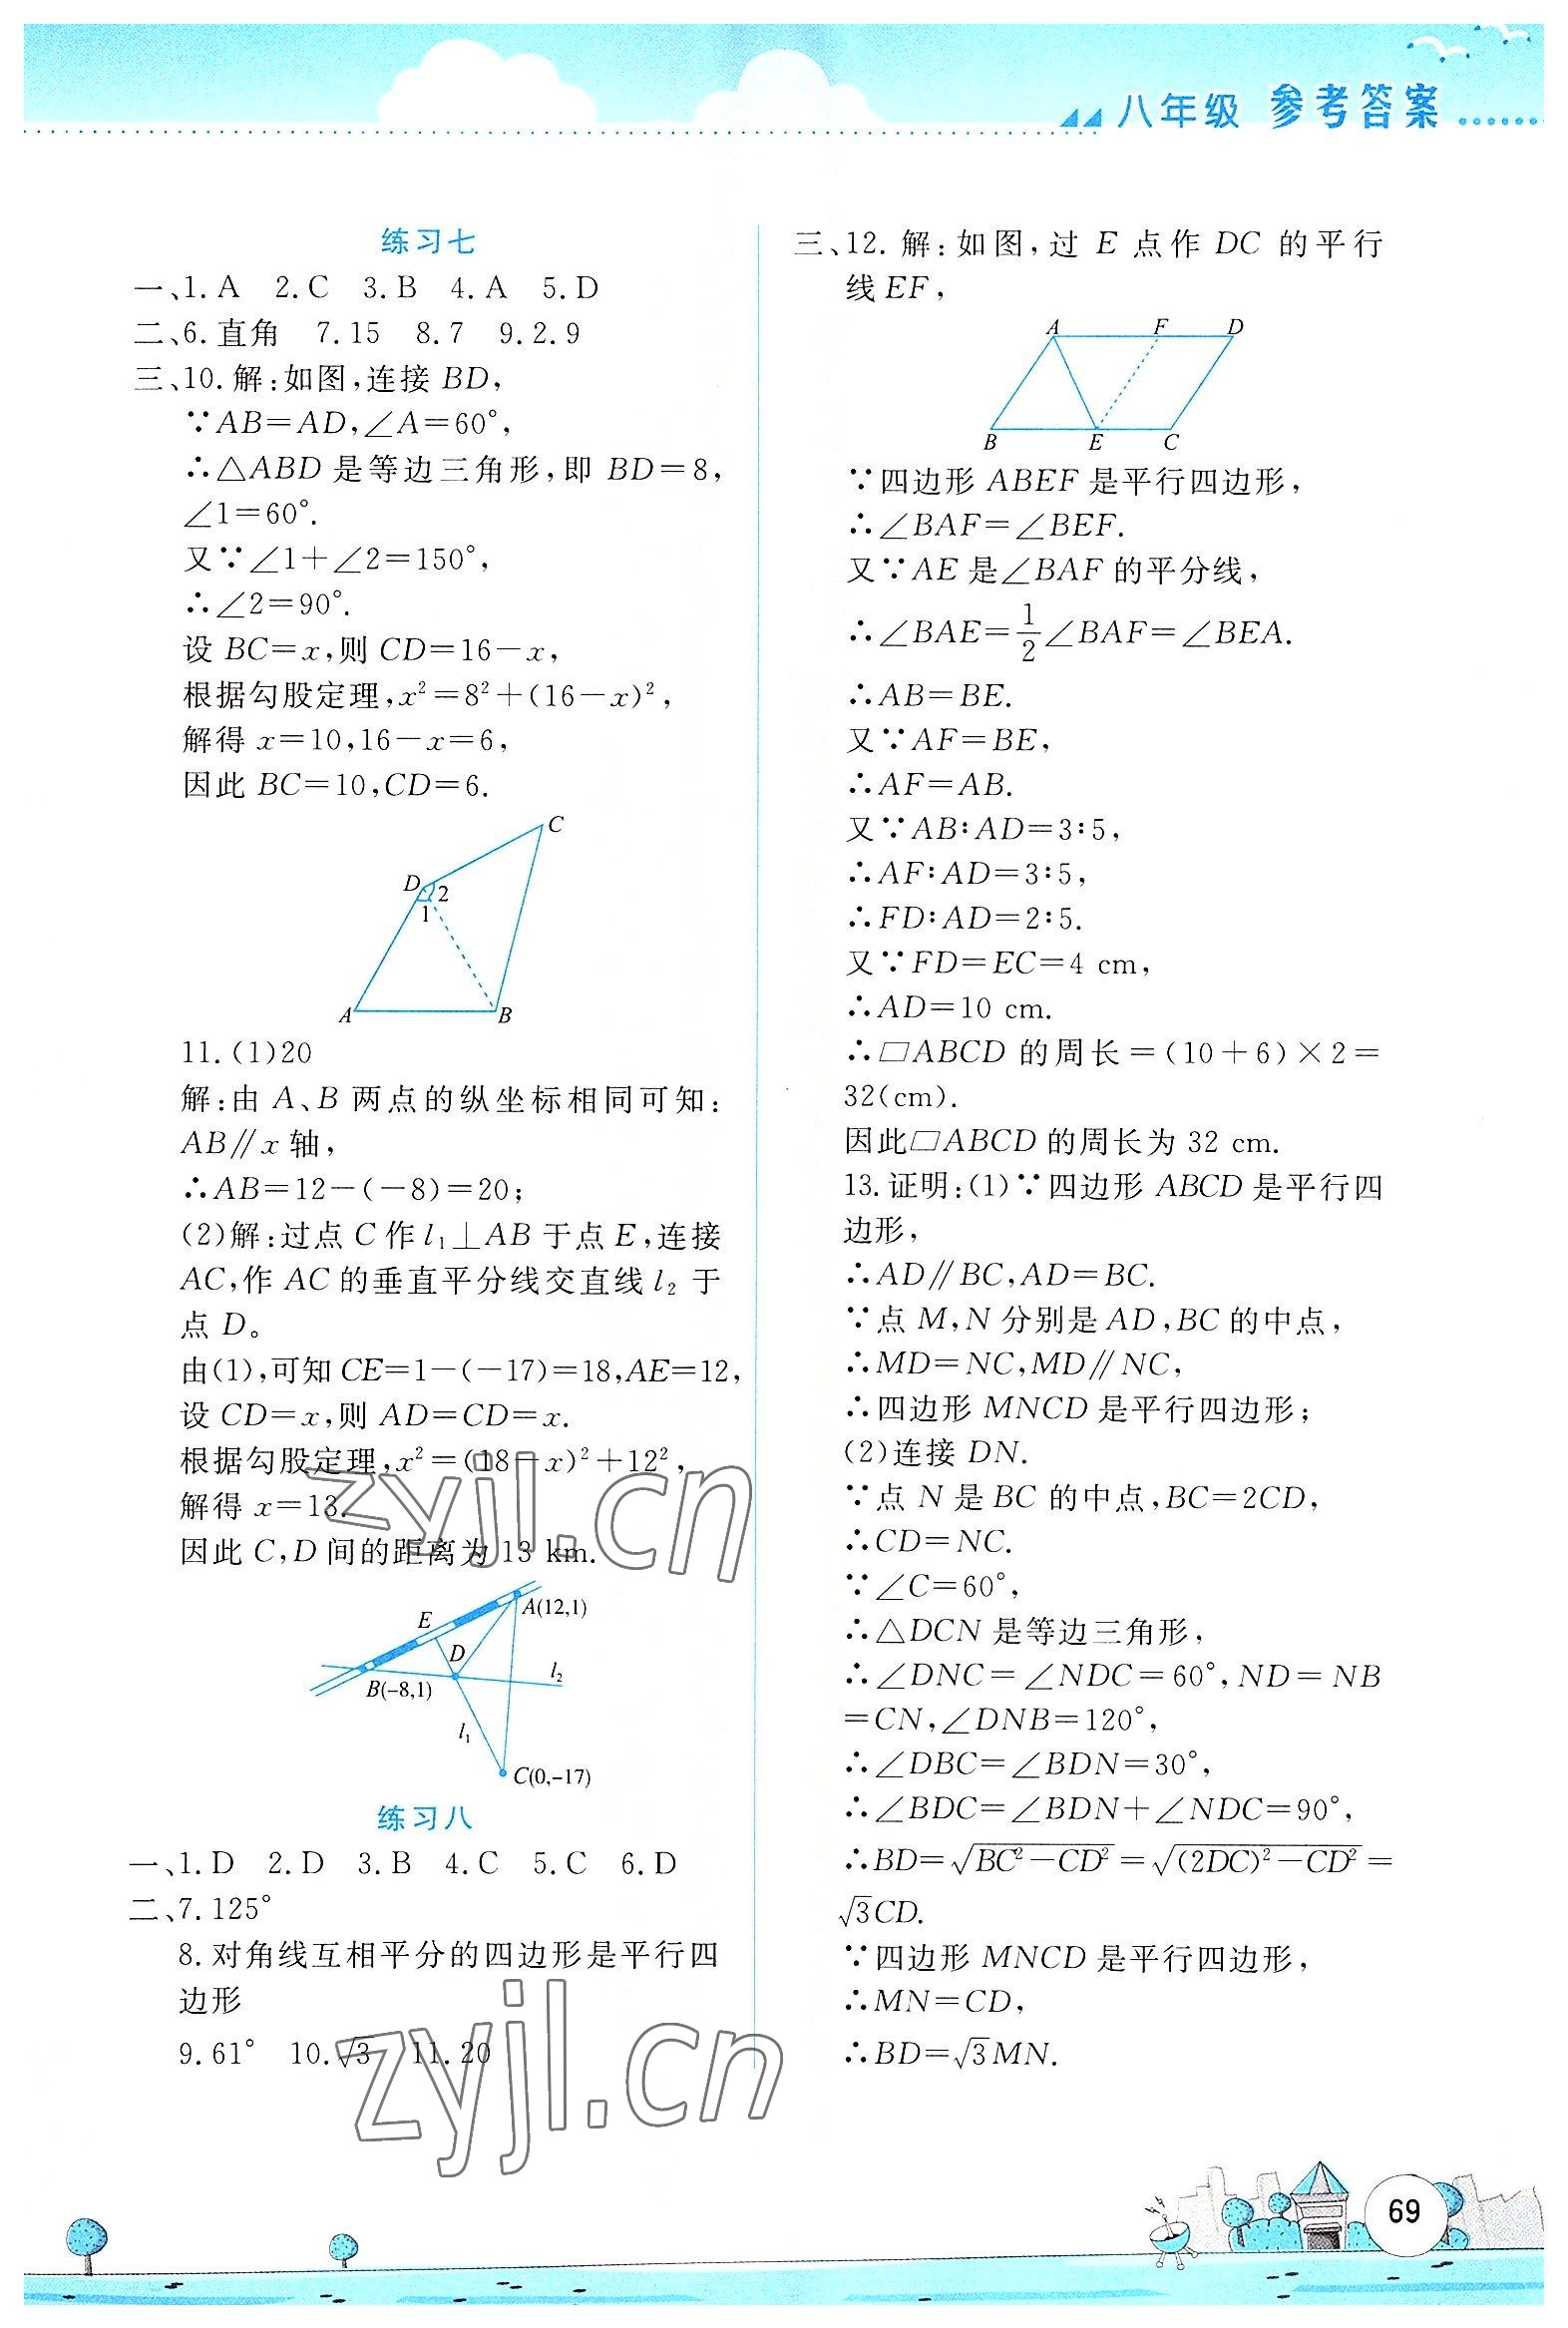 八年级 参考答案
练习七
一、1.A 2.C 3.B 4.A 5.D
二、6.直角 7.15 8.7 9.2.9
三、10.解:如图,连接 BD,
∵AB=AD,∠A=60°,
∴△ABD 是等边三角形,即 BD=8,
∠1=60°.
又∵∠1+∠2=150°,
∴∠2=90°.
设 BC=x,则 CD=16-x,
根据勾股定理,x²=8²+(16-x)²,
解得 x=10,16-x=6,
因此 BC=10,CD=6.
C
D 2
1
A B
11.(1)20
解:由 A、B 两点的纵坐标相同可知:
AB∥x 轴,
∴AB=12-(-8)=20;
(2)解:过点 C 作 l₁⊥AB 于点 E,连接
AC,作 AC 的垂直平分线交直线 l₂ 于
点 D。
由(1),可知 CE=1-(-17)=18,AE=12,
设 CD=x,则 AD=CD=x.
根据勾股定理,x²=(18-x)²+12²,
解得 x=13.
因此 C,D 间的距离为 13 km.
zyjl.cn
E A(12,1)
D
B(-8,1) l₂
l₁
C(0,-17)
练习八
一、1.D 2.D 3.B 4.C 5.C 6.D
二、7.125°
8.对角线互相平分的四边形是平行四
边形
9.61° 10.√3 11.20
zyjl.cn
三、12.解:如图,过 E 点作 DC 的平行
线 EF,
A F D
B E C
∵四边形 ABEF 是平行四边形,
∴∠BAF=∠BEF.
又∵AE 是∠BAF 的平分线,
∴∠BAE=1/2∠BAF=∠BEA.
∴AB=BE.
又∵AF=BE,
∴AF=AB.
又∵AB∶AD=3∶5,
∴AF∶AD=3∶5,
∴FD∶AD=2∶5.
又∵FD=EC=4 cm,
∴AD=10 cm.
∴▱ABCD 的周长=(10+6)×2=
32(cm).
因此▱ABCD 的周长为 32 cm.
13.证明:(1)∵四边形 ABCD 是平行四
边形,
∴AD∥BC,AD=BC.
∵点 M,N 分别是 AD,BC 的中点,
∴MD=NC,MD∥NC,
∴四边形 MNCD 是平行四边形;
(2)连接 DN.
∵点 N 是 BC 的中点,BC=2CD,
∴CD=NC.
∵∠C=60°,
∴△DCN 是等边三角形,
∴∠DNC=∠NDC=60°,ND=NB
=CN,∠DNB=120°,
∴∠DBC=∠BDN=30°,
∴∠BDC=∠BDN+∠NDC=90°,
∴BD=√(BC²-CD²)=√((2DC)²-CD²)=
√3CD.
∵四边形 MNCD 是平行四边形,
∴MN=CD,
∴BD=√3MN.
69